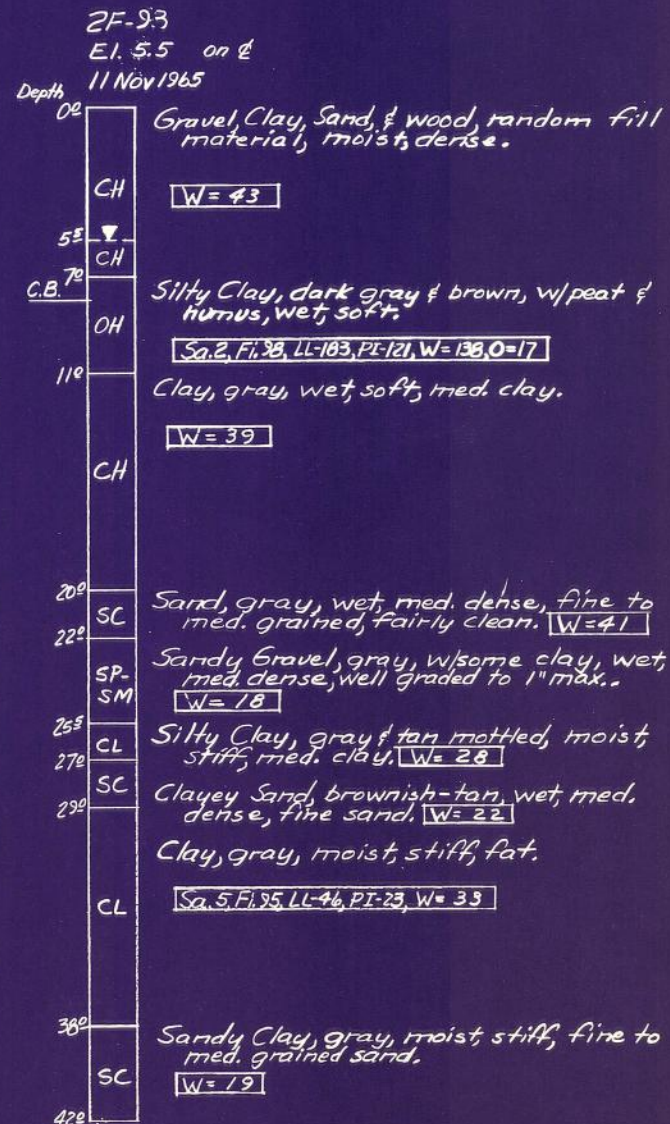 2F-93
El. 5.5 on ₵
11 Nov 1965
Depth
0⁰
Gravel, Clay, Sand, & wood, random fill
material, moist, dense.
CH
W = 43
5⁵
CH
7⁰
C.B.
Silty Clay, dark gray & brown, w/peat &
humus, wet, soft.
OH
Sa.2, Fi.98, LL-183, PI-121, W=138, O=17
11⁰
Clay, gray, wet, soft, med. clay.
W = 39
CH
20⁰
Sand, gray, wet, med. dense, fine to
med. grained, fairly clean. W=41
SC
22⁰
Sandy Gravel, gray, w/some clay, wet,
med. dense, well graded to 1" max..
SP-
SM
W = 18
25⁵
Silty Clay, gray & tan mottled, moist,
stiff, med. clay. W= 28
CL
27⁰
SC
Clayey Sand, brownish-tan, wet, med.
dense, fine sand. W= 22
29⁰
Clay, gray, moist, stiff, fat.
CL
Sa.5, Fi.95, LL-46, PI-23, W= 33
38⁰
Sandy Clay, gray, moist, stiff, fine to
med. grained sand.
SC
W= 19
42⁰